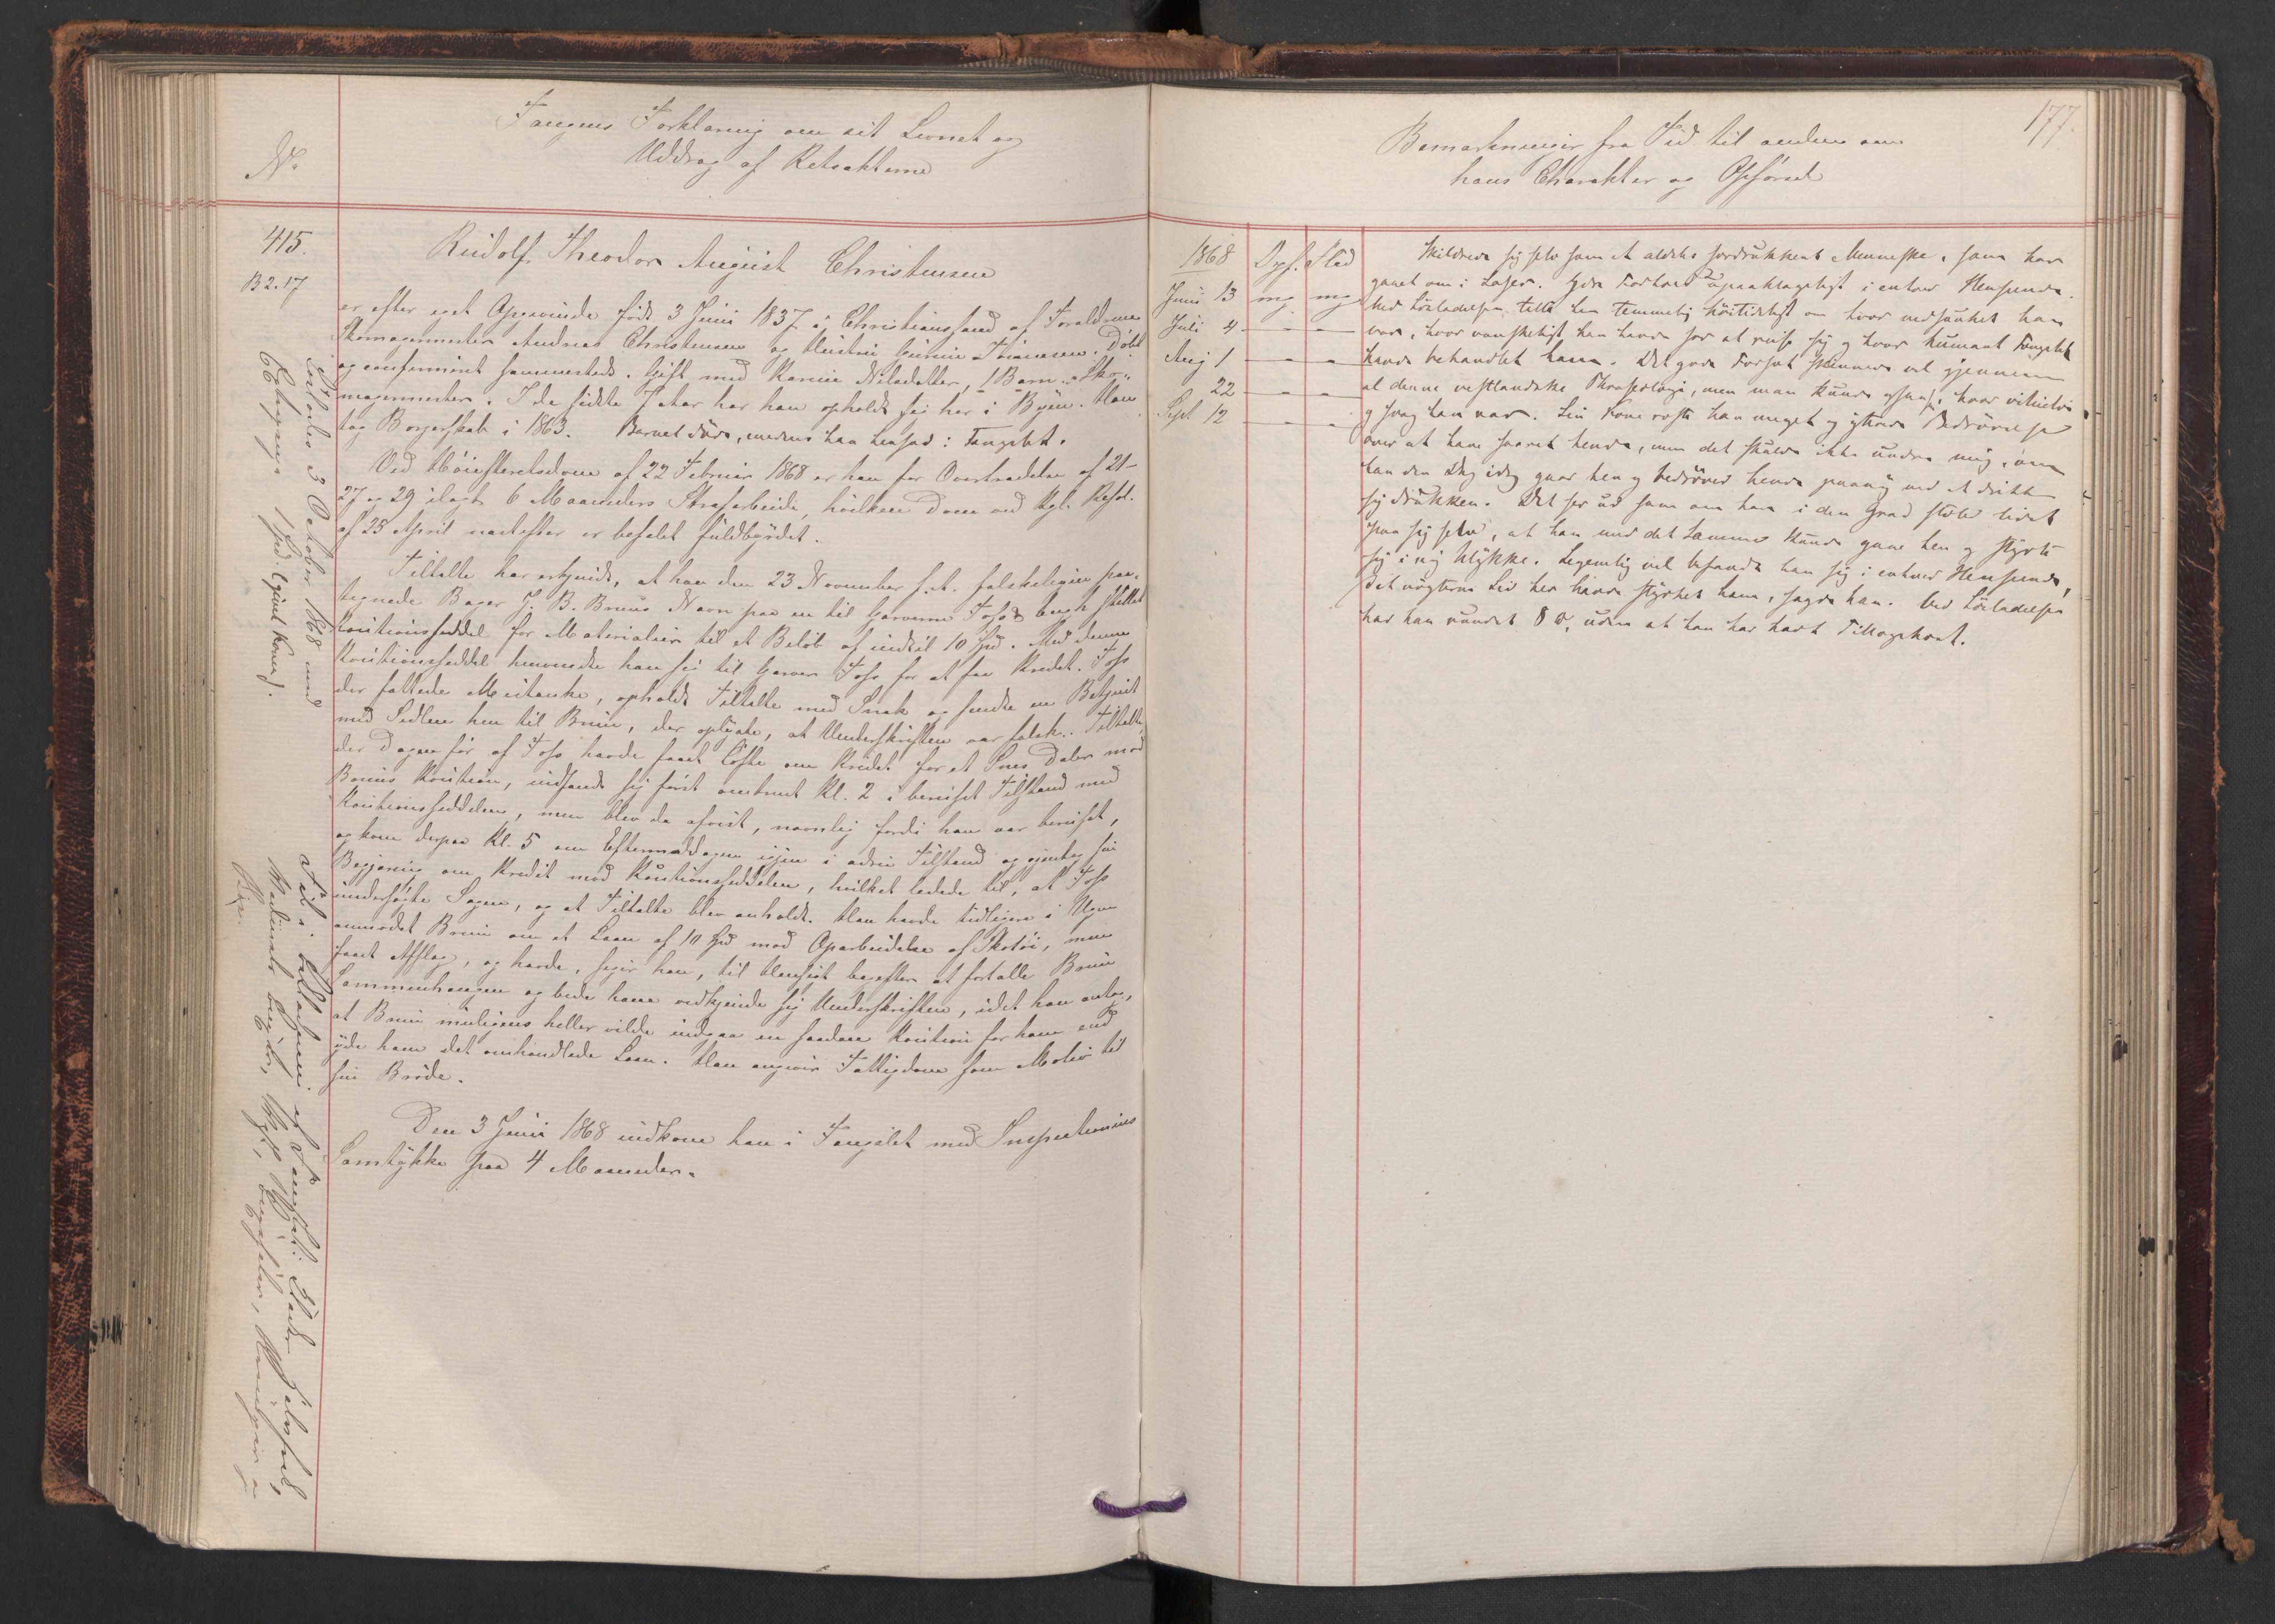 No
Fangens Forklaring om sit Levnet og
Uddrag af Retsakterne
415.
B 2. 17
Rudolf Theodor August Christensen
er efter eget Opgivende født 3 Juni 1837 i Christianssand af Forældrene
Skomagermester Andreas Christensen og Hustru Gunnie Døbt
og confirmeret sammesteds. Gift med Karnie Nilsdatter, 1 Barn. Sko-
magermester. I de sidste 7 Aar har han opholdt sig her i Byen. Han
tog Borgerskab i 1863. Barnet døde, medens han hensad i Fængslet.
Ved Høiesteretsdom af 22 Februar 1868 er han for Overtrædelse af 21-
27 og 29 ilagt 6 Maaneders Strafarbeide, hvilken Dom ved Kgl. Resol.
af 25 April næstefter er befalet fuldbyrdet.
Tiltalte har erkjendt, at han den 23 November f. A. falskeligen paa-
tegnede Bager J. B. Bruns Navn paa en til Garverne Foss & stillet
Kautionsseddel for Materialier til et Beløb af indtil 10 Spd. Med denne
Kautionsseddel henvendte han sig til Garver Foss for at faa Kredit. Foss
der fattede Mistanke, opholdt Tiltalte med Snak og sendte en Betjent
med Sedlen hen til Brun, der oplyste, at Underskriften var falsk. Tiltalte,
der Dagen før af Foss havde faaet Løfte om Kredit for et Snes Daler mod
Bruns Kaution, indfandt sig først omtrent Kl. 2 i beruset Tilstand med
Kautionsseddelen, men blev da afvist, navnlig fordi han var beruset,
og kom derpaa Kl. 5 om Eftermiddagen igjen i ædru Tilstand og gjentog sin
Begjæring om Kredit mod Kautionsseddelen, hvilket ledede til, at Foss
undersøgte Sagen, og at Tiltalte blev anholdt. Han havde tidligere i Ugen
anmodet Brun om et Laan af 10 Spd mod Oparbeidelse af Skotøi, men
faaet Afslag, og havde, siger han, til Hensigt bagefter at fortælle Brun
Sammenhængen og bede ham vedkjende sig Underskriften, idet han antog,
at Brun muligens heller vilde indgaa en saadan Kaution for ham end
yde ham det omhandlede Laan. Han angiver Fattigdom som Motiv til
sin Brøde.
Den 3 Juni 1868 indkom han i Fængslet med Inspectionens
Samtykke paa 4 Maaneder.
Løslades 3 October 1868 med
1 Spd. (givet Konen).
177.
Bemærkninger fra Tid til anden om
hans Charakter og Opførsel
1868 Opf. Flid
Juni 13 mg mg
Juli 4 - -
Aug 1 - -
22 - -
Sept 12 - -
Skildrede sig selv som et aldeles fordrukkent Menneske, som har
gaaet om i Laser. Hans Forhold upaaklageligt i enhver Henseende.
Ved Løsladelsen talte han temmelig høitideligt om hvor nedsunket han
var, hvor vanskeligt han havde for at reise sig og hvor humant Fængslet
havde behandlet ham. Det gode Forsæt skinnede vel gjennem
al denne vestlandske Phraseologi, men man kunde ogsaa se hvor
og svag han var. Sin Kone roste han meget og yttrede Bedrøvelse
over at have saaret hende, men det skulde ikke undre mig, om
han den Dag idag gaar hen og bedrøver hende paany ved at drikke
sig drukken. Det ser ud som om han i den Grad stoler lidet
paa sig selv, at han med det Samme kunde gaae hen og styrte
sig i ny Ulykke. Legemlig vel befandt han sig i enhver Henseende,
det nøgterne Liv her havde styrket ham, sagde han. Ved Løsladelsen
har han vundet 8 , uden at han har havt Tillægskost.